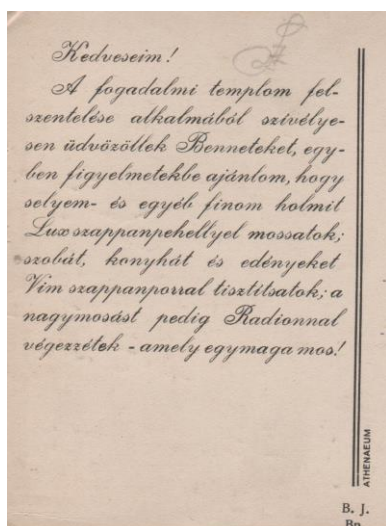 Kedveseim!
A fogadalmi templom fel-
szentelése alkalmából szívélye-
sen üdvözöllek Benneteket, egy-
ben figyelmetekbe ajánlom, hogy
selyem- és egyéb finom holmit
Lux szappanpehellyel mossatok;
szobát, konyhát és edényeket
Vim szappanporral tisztítsatok; a
nagymosást pedig Radionnal
végezzétek - amely egymaga mos!
ATHENAEUM
B. J.
Bp